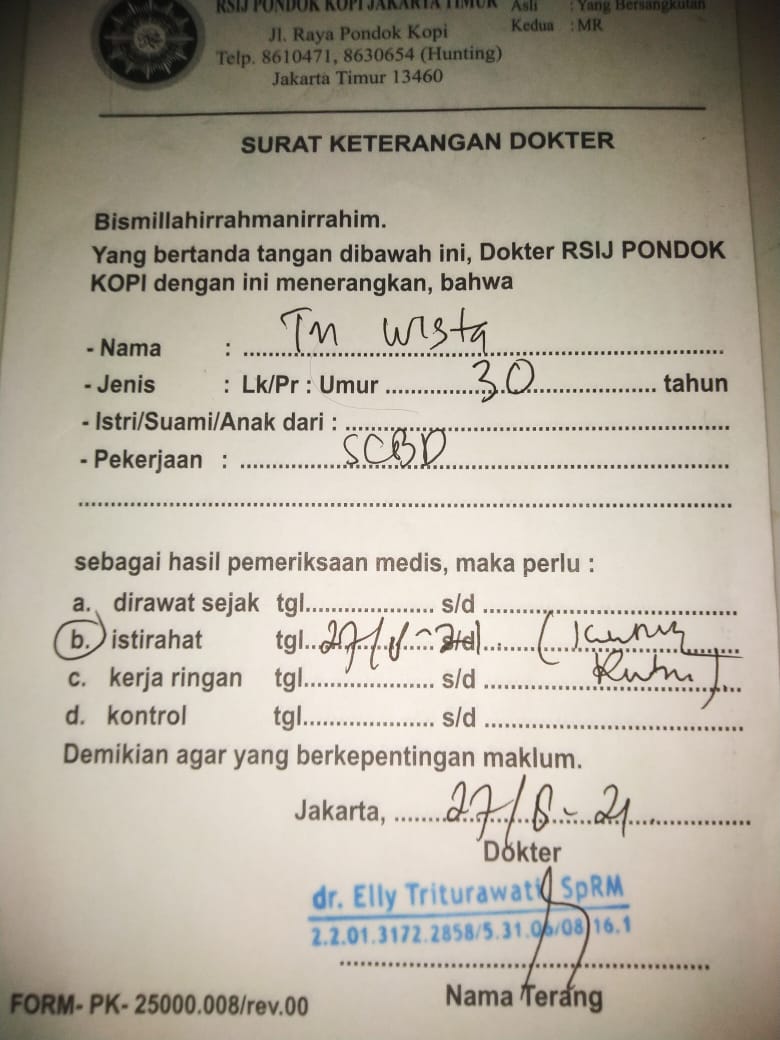 RSIJ PONDOK KOPI JAKARTA TIMUR
Asli : Yang Bersangkutan
Jl. Raya Pondok Kopi
Kedua : MR
Telp. 8610471, 8630654 (Hunting)
Jakarta Timur 13460
SURAT KETERANGAN DOKTER
Bismillahirrahmanirrahim.
Yang bertanda tangan dibawah ini, Dokter RSIJ PONDOK
KOPI dengan ini menerangkan, bahwa
- Nama : Tn Wista
- Jenis : Lk/Pr : Umur 30 tahun
- Istri/Suami/Anak dari :
- Pekerjaan : SCBD
sebagai hasil pemeriksaan medis, maka perlu :
a. dirawat sejak tgl. s/d
b. istirahat tgl. 27/8-21
c. kerja ringan tgl. s/d
d. kontrol tgl. s/d
Demikian agar yang berkepentingan maklum.
Jakarta, 27/8-21
Dokter
dr. Elly Triturawati SpRM
2.2.01.3172.2858/5.31.06/08 16.1
Nama Terang
FORM- PK- 25000.008/rev.00